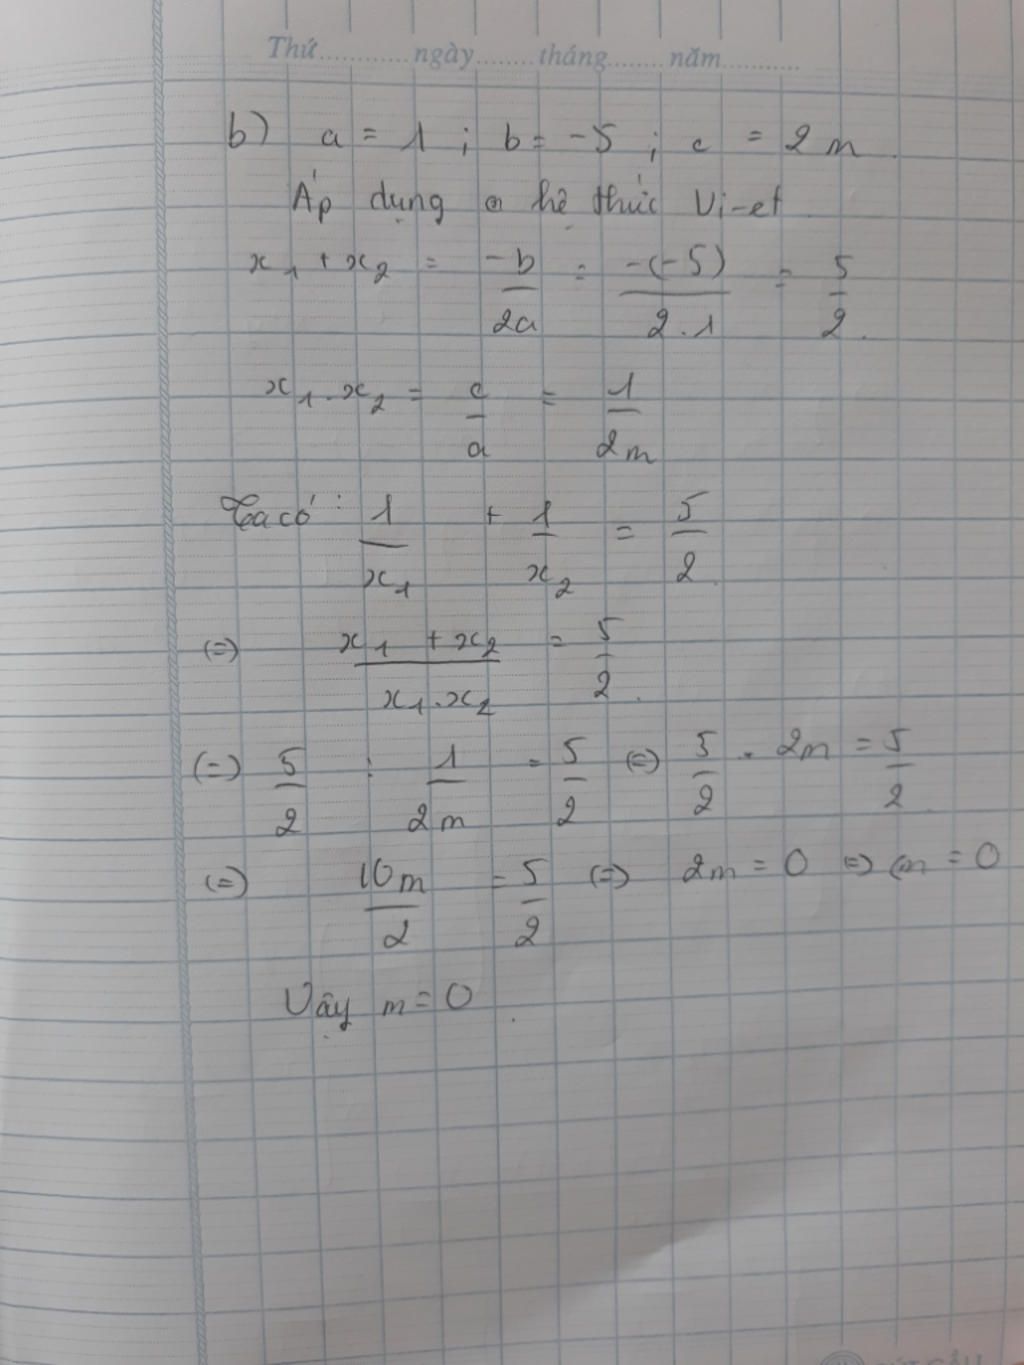 Thứ............ngày........tháng........năm...........
b) a = 1 ; b = -5 ; c = 2m
Áp dụng hệ thức Vi-et
x₁ + x₂ = -b/2a = -(-5)/2.1 = 5/2.
x₁ . x₂ = c/a = 1/2m
Ta có : 1/x₁ + 1/x₂ = 5/2
(=) x₁ + x₂/x₁.x₂ = 5/2.
(=) 5/2 : 1/2m = 5/2 (=) 5/2 . 2m = 5/2
(=) 10m/2 = 5/2 (=) 2m = 0 => m = 0
Vậy m = 0